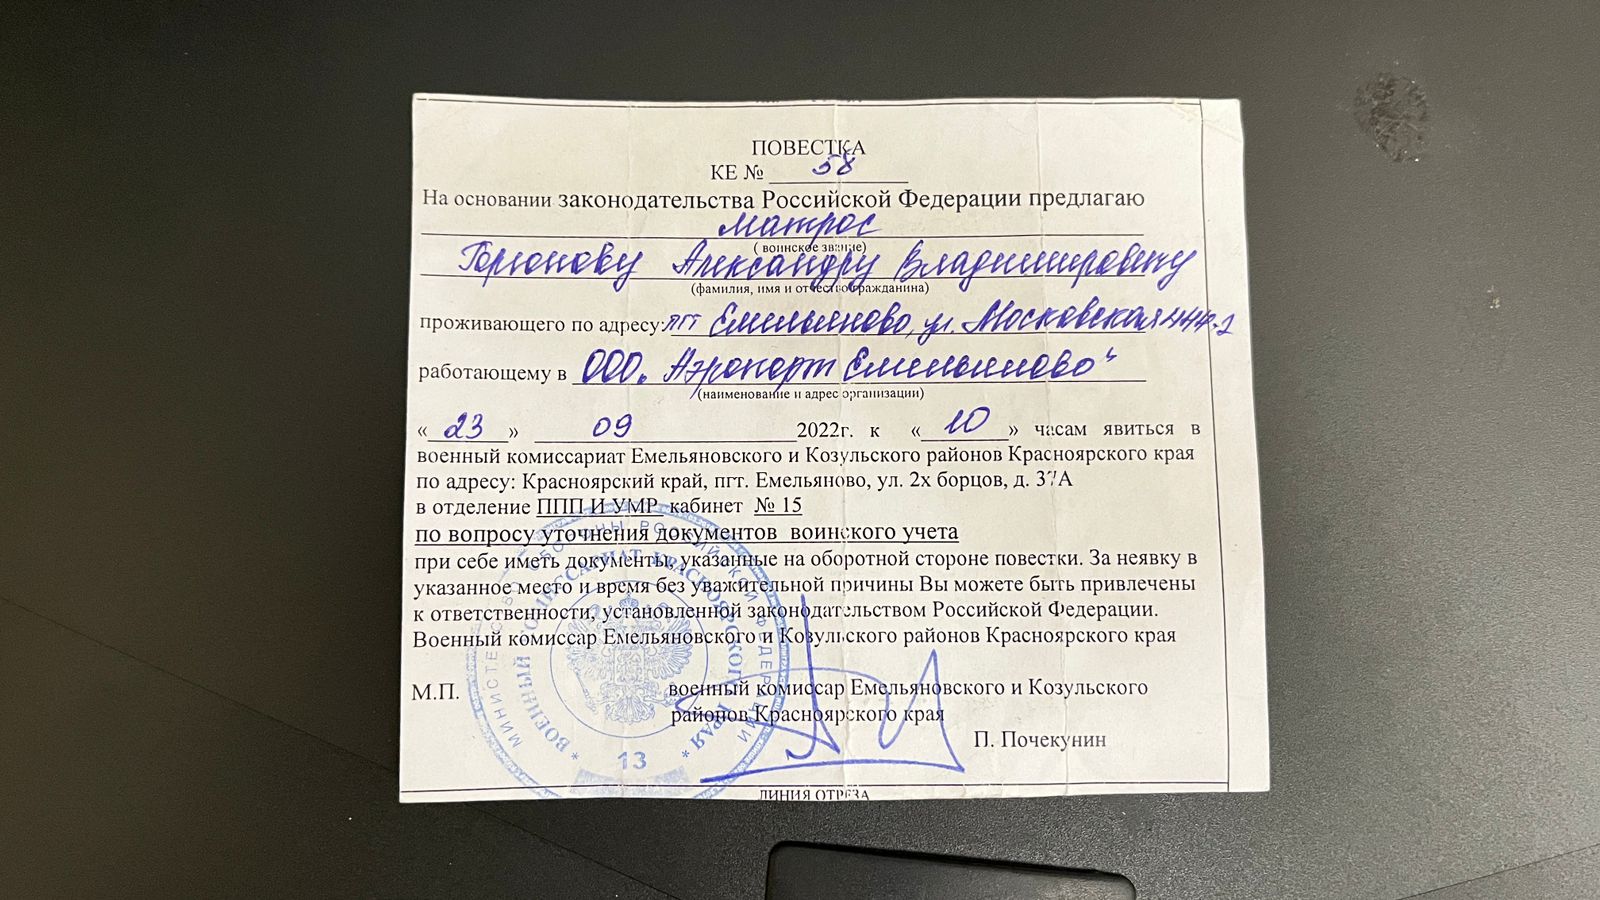 ПОВЕСТКА
КЕ № 58
На основании законодательства Российской Федерации предлагаю
матрос
( воинское звание)
Горюнову Александру Владимировичу
(фамилия, имя и отчество гражданина)
проживающего по адресу: пгт Емельяново, ул. Московская
работающему в ООО „Аэропорт Емельяново"
(наименование и адрес организации)
« 23 » 09 2022г. к « 10 » часам явиться в
военный комиссариат Емельяновского и Козульского районов Красноярского края
по адресу: Красноярский край, пгт. Емельяново, ул. 2х борцов, д. 37А
в отделение ППП И УМР кабинет № 15
по вопросу уточнения документов воинского учета
при себе иметь документы, указанные на оборотной стороне повестки. За неявку в
указанное место и время без уважительной причины Вы можете быть привлечены
к ответственности, установленной законодательством Российской Федерации.
Военный комиссар Емельяновского и Козульского районов Красноярского края
М.П.
военный комиссар Емельяновского и Козульского
районов Красноярского края
П. Почекунин
МИНИСТЕРСТВО ОБОРОНЫ РОССИЙСКОЙ ФЕДЕРАЦИИ
* ВОЕННЫЙ КОМИССАРИАТ КРАСНОЯРСКОГО КРАЯ *
13
ЛИНИЯ ОТРЕЗА